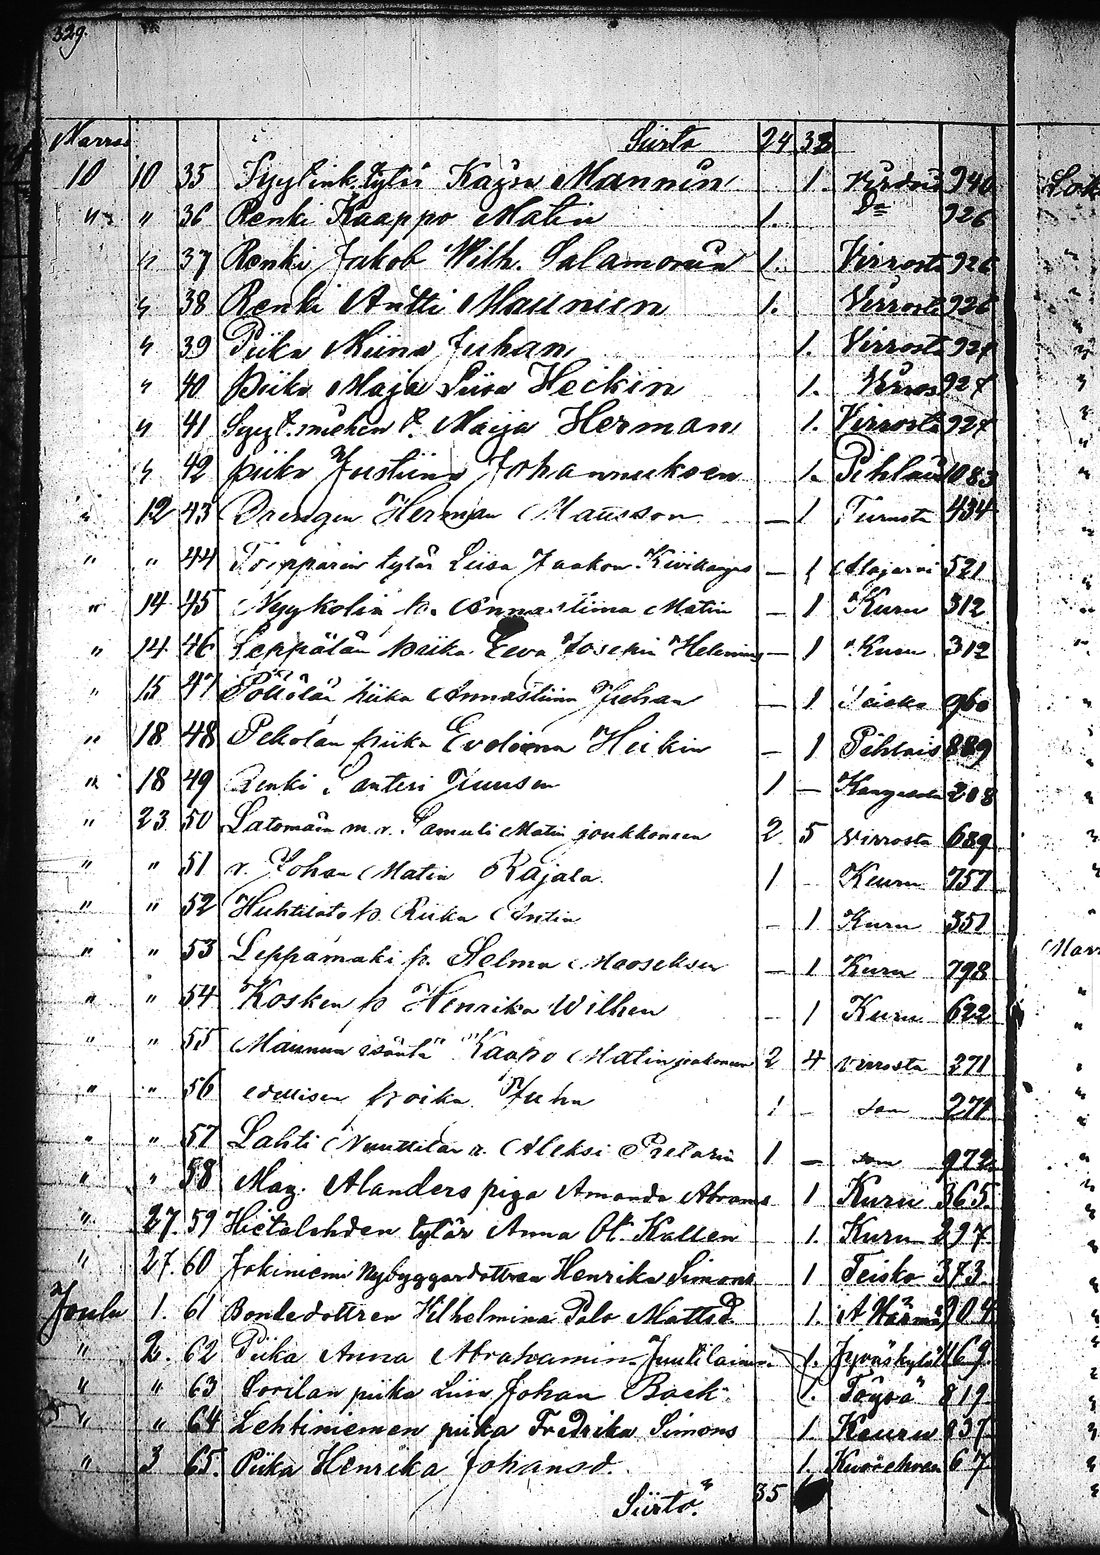 329.
Marras Siirto 24 33
10 10 35 Syytink. tytär Kaysa Mannün 1. 940
" " 36 Renki Kaappo Matin 1. Do 926
" 37 Renki Jakob Wilh. Salamonin 1. Virrosta 926
" 38 Renki Antti Maunien 1. Virrosta 926
" 39 Piika Miina Juhan 1. Virrosta 927
" 40 piika Maja Liisa Heikin 1. 927
" 41 Syyt. miehen t. Maija Herman 1. Virrosta 927
" 42 piika Justiina Johannuksen 1. 1083
" 12 43 Drengen Herman Mausson — 1 434
" " 44 Torpparin tytär Liisa Jaakon Kivikangas — 1 Alajarvi 521
" 14 45 p. Annastiina Matin — 1 Kuru 312
" 14 46 Leppälän piika Eeva Josepin — 1 Kuru 312
" 15 47 piika Annastiina Juhan — 1 Teisko 960
" 18 48 Pekolan piika Evelina Heikin — 1 Pihlais 889
" 18 49 Renki Santeri Juusen 1 — 208
" 23 50 Latomäen m.v. Samuli Matin joukkoneen 2 5 Virrosta 689
" " 51 r. Johan Matin Rajala 1 - Keuru 757
" " 52 p. Riika Antin - 1 Kuru 351
" " 53 Leppämaki p. Selma Mooseksen — 1 Kuru 798
" " 54 Kosken p Henrika Wilhen - 1 Kuru 622
" " 55 Maunun isäntä Kaapo Matin 2 4 Virrosta 271
" " 56 edellisen poika Juha 1 - sam 271
" " 57 Lahti Nuuttilan r. Aleksi Pretarin 1 — sam 972
" " 58 Mag. Alanders piga Amanda Abrams 1 Kuru 365.
" 27. 59 Hietalahden tytär Anna Kallen 1. Kuru 297
" 27. 60 Jokiniemi Nybyggardottren Henrika Simons 1 Teisko 373.
Joulu 1. 61 Bondedottren Vilhelmina Palo Mattsd. 1. A Härmä 904
" 2. 62 Piika Anna Abrahamin Juutilainen 1. Jyväskylä 1169
" " 63 Sorilan piika Liisa Johan Back 1. Töysä 819
" " 64 Lehtiniemen piika Fredrika Simons 1. Keuru 837
" 3 65. Piika Henrika Johansd. 1. 67
Siirto. 35